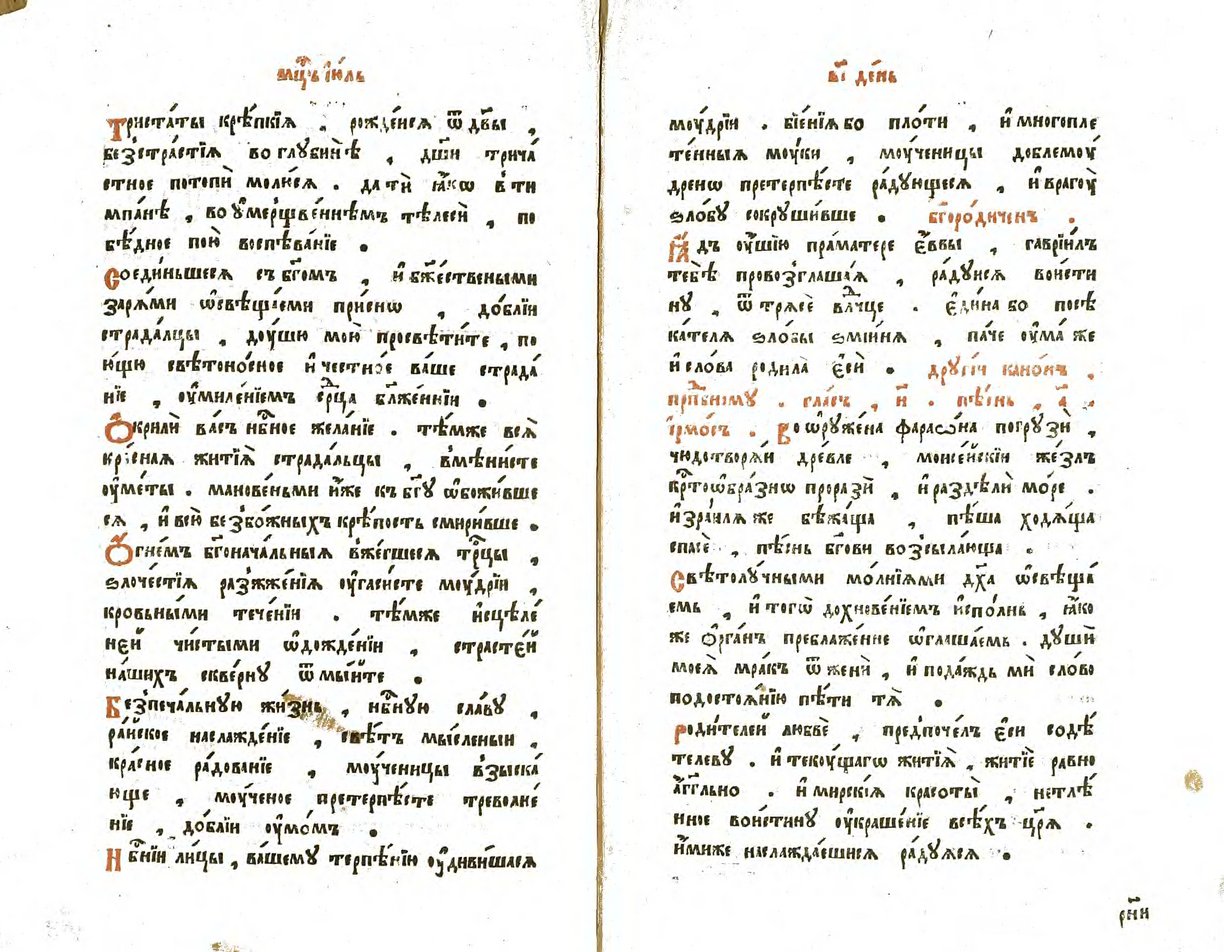 мц҃ъ і҆ю́ль
Триста́ты крѣ́пкїѧ , рожде́йсѧ ѿ дв҃ы ,
безстра́стїѧ во глꙋбинѣ̀ , дш҃и трича́
стное потопѝ молю́сѧ . да тѝ ꙗ҆́кѡ в ти
мпа́нѣ , во ᲂу҆мерщвле́нїемъ тѣ́лесѝ , по
бѣ́дное пою̀ воспѣва́нїе .
Соеди́ньшесѧ съ бг҃омъ , и҆ бж҃е́ствеными
зарѧ́ми ѡ҆свѣща́еми при́снѡ , до́блїи
страда́лцы , дꙋ́шю мою̀ просвѣти́те , по
ю́щю свѣтоно́сное и҆ честно́е ва́ше страда́
нїе , ᲂу҆миле́нїемъ се́рдца блаже́ннїи .
Ѻ҆крилѝ ва́съ нбⷭ҇ное жела́нїе . тѣ́мже всѧ̀
кра́снаѧ житїѧ̀ страда́льцы , вмѣни́сте
ᲂу҆мѐты . манове́ньми и҆́же къ бг҃ꙋ ѡ҆божи́вше
сѧ , и҆ всю̀ безбо́жныхъ крѣ́пость смири́вше .
Ѻ҆гне́мъ бг҃онача́льныѧ вже́гшесѧ трⷪ҇цы ,
ѕлоче́стїѧ разжже́нїѧ ᲂу҆гаси́сте мꙋ́дрїи ,
кро́вьными тече́нїи . тѣ́мже и҆сцѣле́
ней чи́стыми ѡ҆дожде́нїи , страсте́й
на́шихъ скве́рнꙋ ѿмы́йте .
Безпеча́льнꙋю жи́знь , нбⷭ҇нꙋю сла́вꙋ ,
ра́йское наслажде́нїе , свѣ́тъ мы́сленыи ,
кра́сное ра́дованїе , мꙋ́ченицы взыска́
юще , мꙋ́ченое претерпѣ́сте треволне́
нїе , до́блїи ᲂу҆мо́мъ .
Нбⷭ҇нїи ли́цы , ва́шемꙋ терпѣ́нїю ᲂу҆диви́шасѧ
в҃і де́нь
мꙋ́дрїи . бїе́нїѧ бо пло́ти , и҆ многопле
те́нныѧ мꙋ́ки , мꙋ́ченицы доблемꙋ́
дренѡ претерпѣ́сте ра́дꙋющесѧ , и҆ врагꙋ̀
ѕло́бꙋ сокрꙋши́вше . бг҃оро́диченъ .
Ꙗ҆́дъ ᲂу҆́шїю прама́тере є҆́ввы , гаврїи́лъ
тебѣ̀ провозглаша́ѧ , ра́дꙋисѧ вои́сти
нꙋ , ѿтрѧ́сѐ влⷣчце . є҆ди́на бо посѣ
ка́телѧ ѕло́бы ѕмїи́нѧ , па́че ᲂу҆ма́ же
и҆ сло́ва родила̀ є҆сѝ . дрꙋгі́и кано́нъ ,
прпⷣбномꙋ . гла́съ , и҃ . пѣ́снь , а҃ .
і҆рмо́съ . Воѡрꙋже́на фараѡ́на погрꙋзѝ ,
чюдотворѧ́и дре́вле , мѡисе́йскїи же́злъ
крⷭ҇тоѡбра́знѡ поразѝ , и҆ раздѣлѝ мо́ре .
и҆зра́илѧ же бѣжа́ща , пѣ́ша ходѧ́ща
спасѐ , пѣ́снь бг҃ови возсыла́юща .
Свѣтолꙋ́чными мо́лнїѧми дх҃а ѡ҆свѣща́
емь , и҆ тогѡ̀ дохнове́нїемъ и҆спо́лнь , ꙗ҆́ко
же ѻ҆рга́нъ преблаже́нне ѡ҆глаша́емь . дꙋшѝ
моеѧ̀ мра́къ ѿженѝ , и҆ пода́ждь мѝ сло́во
подостоѧ́нїю пѣ́ти тѧ̀ .
Роди́телей любвѐ , предпоче́лъ є҆сѝ содѣ́
телеву . и҆ текꙋ́щагѡ житїѧ̀ , житїѐ равно
а҆́гг҃льно . и҆ мирскі́ѧ красоты̀ , нетлѣ́
нное вои́стинꙋ ᲂу҆краше́нїе всѣ́хъ цр҃ѧ̀ .
и҆́миже наслажда́ешисѧ ра́дꙋѧсѧ .
рн҃и